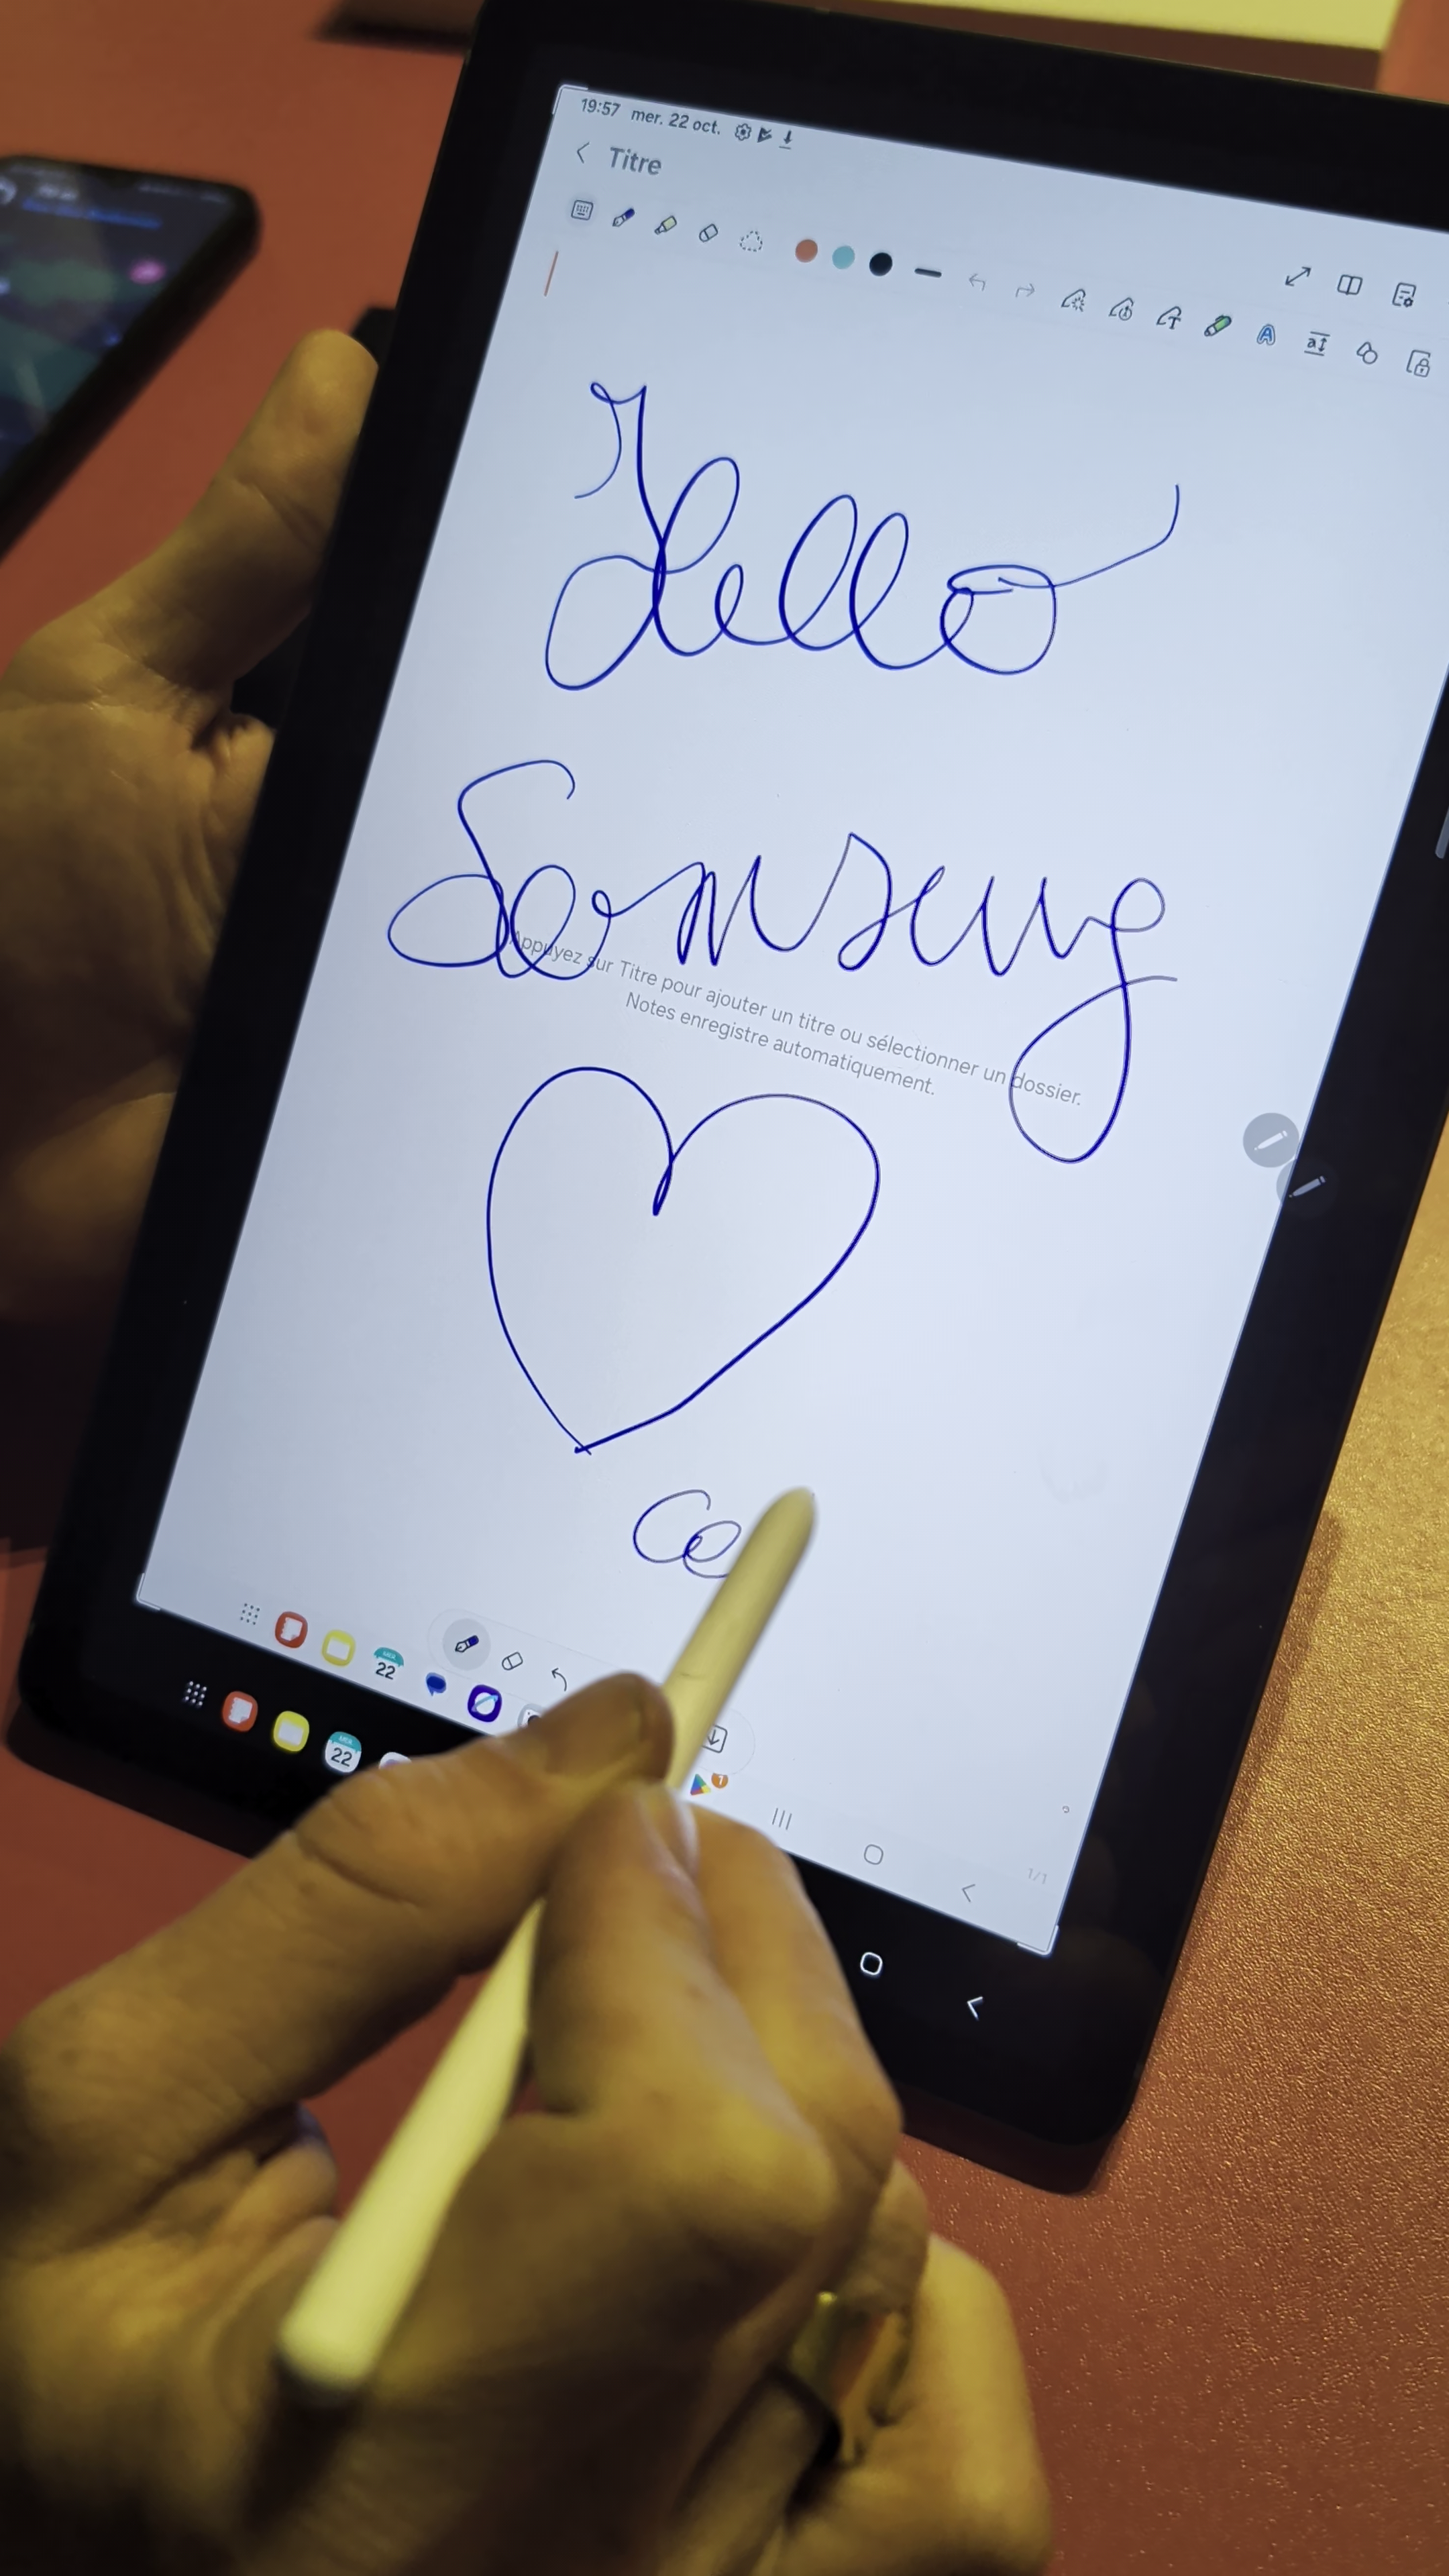 19:57 mer. 22 oct.
Titre
Hello
Samsung
Appuyez sur Titre pour ajouter un titre ou sélectionner un dossier.
Notes enregistre automatiquement.
Ce
22
22
1
1/1